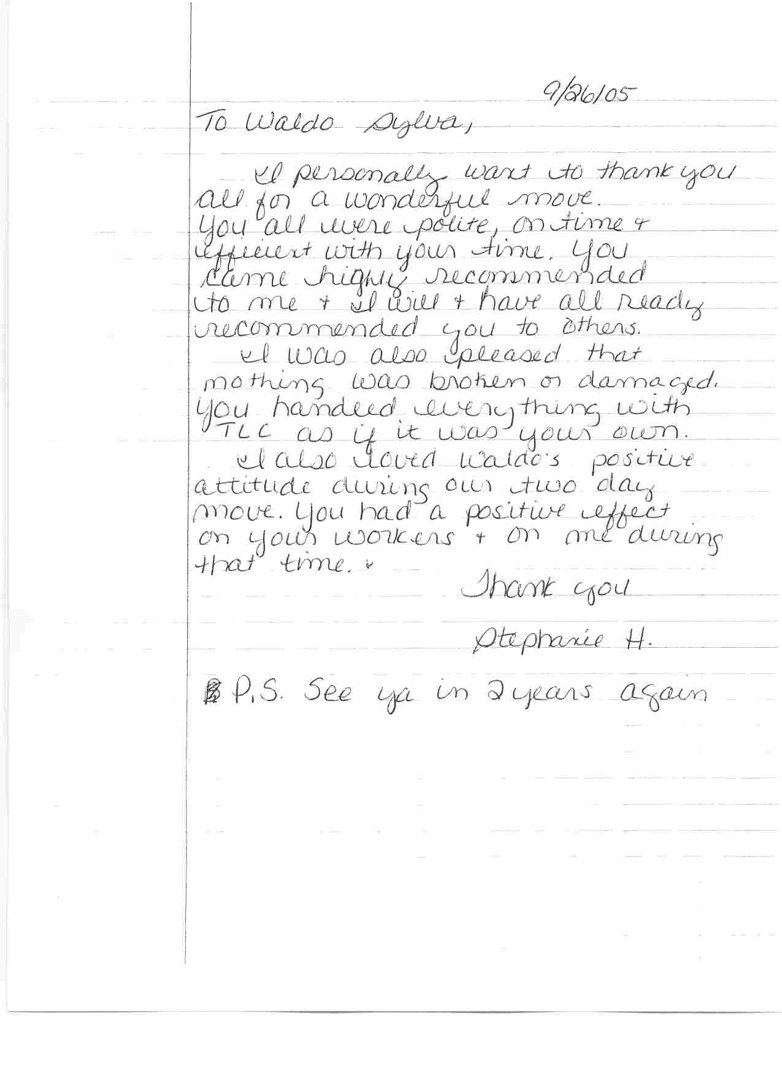 9/26/05
To Waldo Sylva,
I personally want to thank you
all for a wonderful move.
You all were polite, on time +
efficient with your time. You
came highly recommended
to me + I will + have all ready
recommended you to others.
I was also pleased that
nothing was broken or damaged.
You handeed everything with
TLC as if it was your own.
I also loved Waldo's positive
attitude during our two day
move. You had a positive effect
on your workers + on me during
that time.
Thank you
Stephanie H.
P.S. See ya in 2 years again